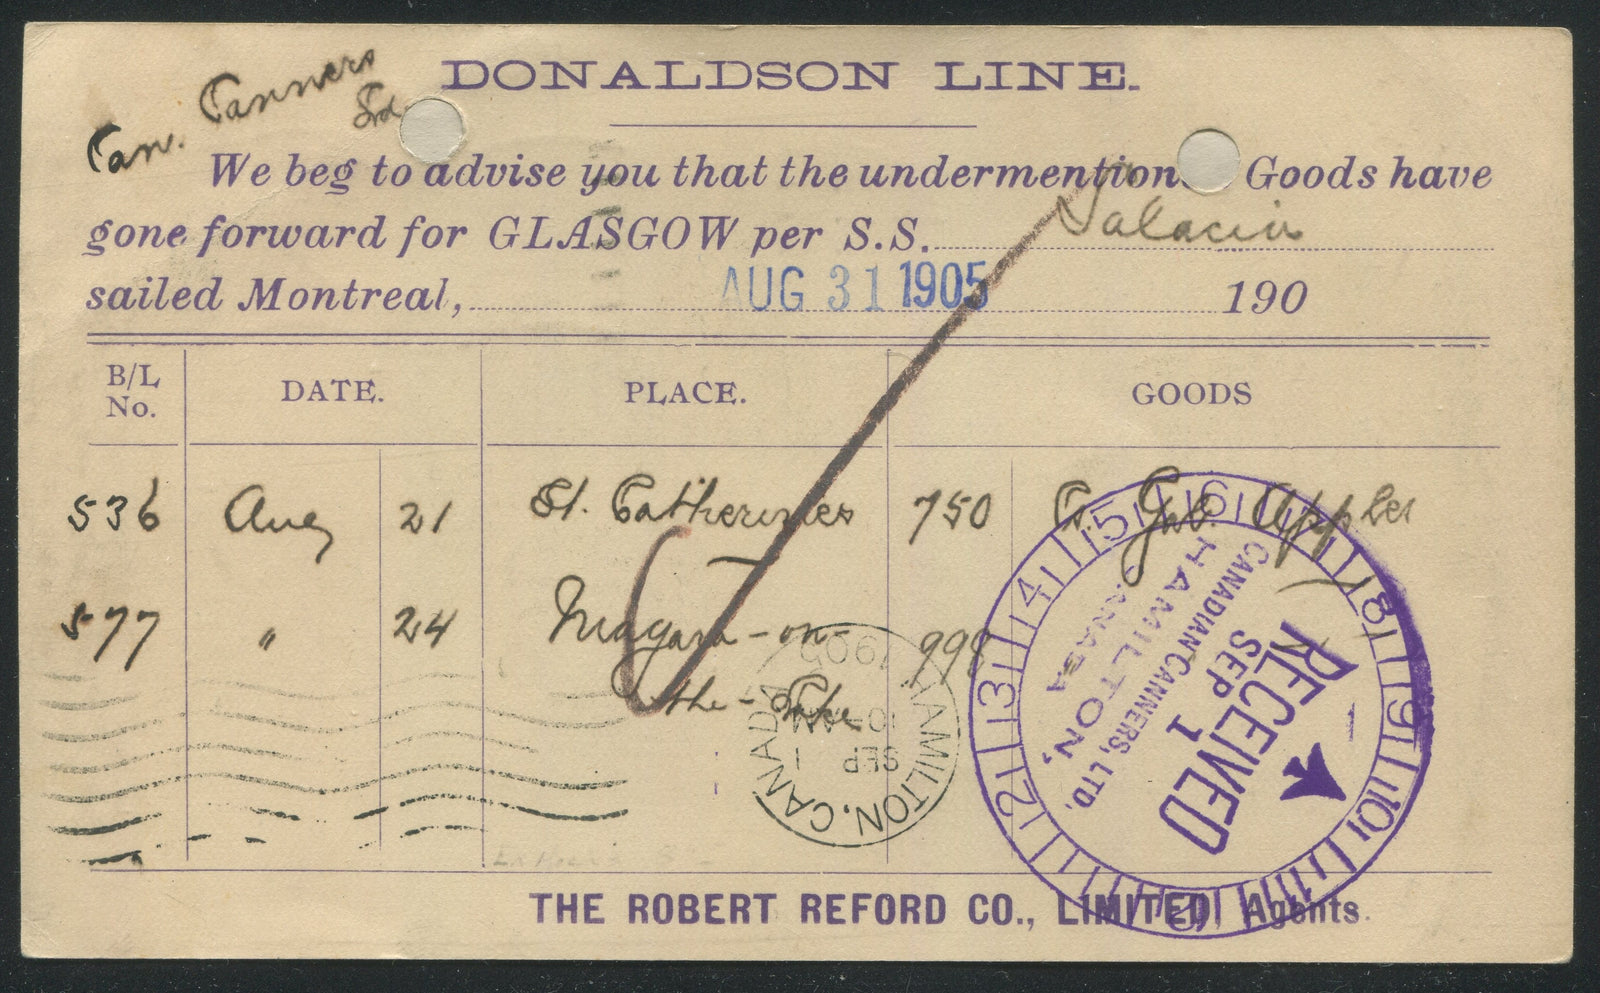 DONALDSON LINE.
Can. Canners Ltd
We beg to advise you that the undermention Goods have
gone forward for GLASGOW per S.S. Salacia
sailed Montreal, AUG 31 1905 190
B/L No. DATE. PLACE. GOODS
536 Aug 21 St. Catherines 750 Apples
577 " 24 Niagara-on- 998
the-Lake
HAMILTON, CANADA
10-AM
SEP 1
1905
RECEIVED
SEP 1
CANADIAN CANNERS, LTD.
HAMILTON,
CANADA
1 2 3 4 5 6 7 8 9 10 11 12
THE ROBERT REFORD CO., LIMITED, Agents.